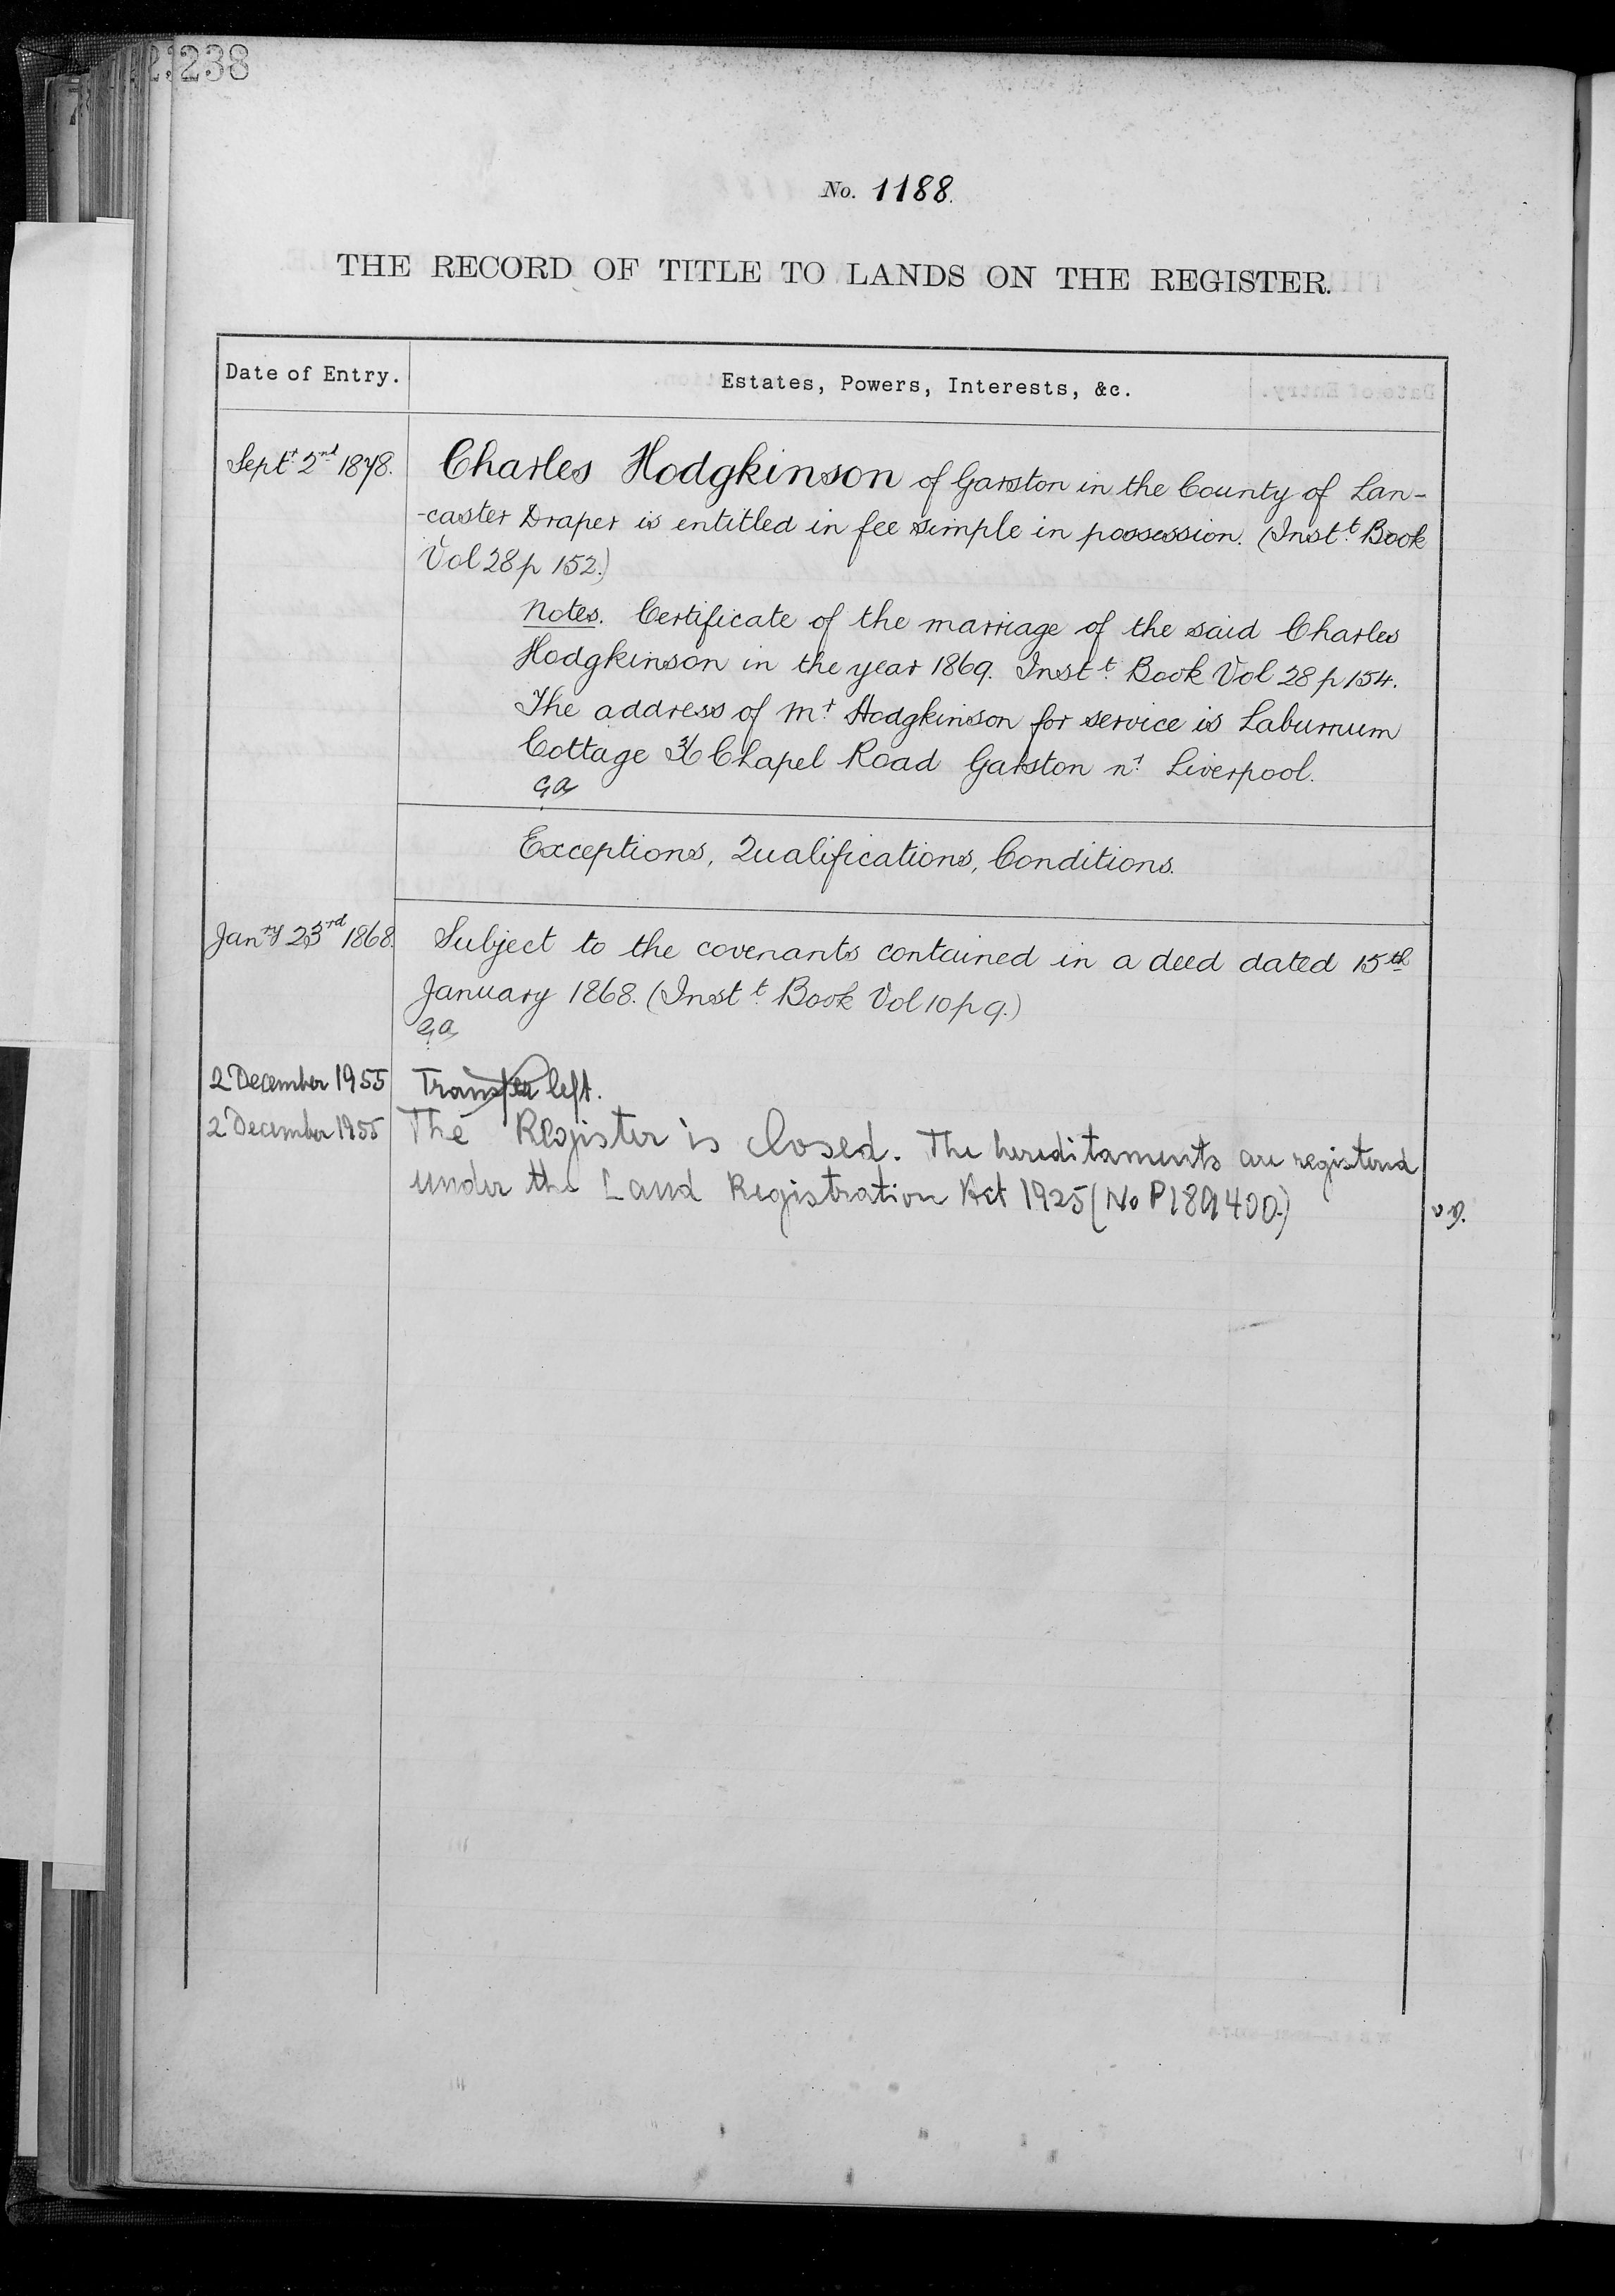 238
No. 1188.
THE RECORD OF TITLE TO LANDS ON THE REGISTER.
Date of Entry.
Estates, Powers, Interests, &c.
Septr 2nd 1878.
Charles Hodgkinson of Garston in the County of Lan-
-caster Draper is entitled in fee simple in possession. (Instt. Book
Vol 28 p 152.)
Notes. Certificate of the marriage of the said Charles
Hodgkinson in the year 1869. Instt. Book Vol 28 p 154.
The address of Mr Hodgkinson for service is Laburnum
Cottage Chapel Road Garston nr. Liverpool.
Exceptions, Qualifications, Conditions.
Janry 23rd 1868.
Subject to the covenants contained in a deed dated 15th
January 1868. (Instt. Book Vol 10 p 9.)
2 December 1955
Transfer left.
2 December 1955
The Register is closed. The hereditaments are registered
under the Land Registration Act 1925 (No P189400.)